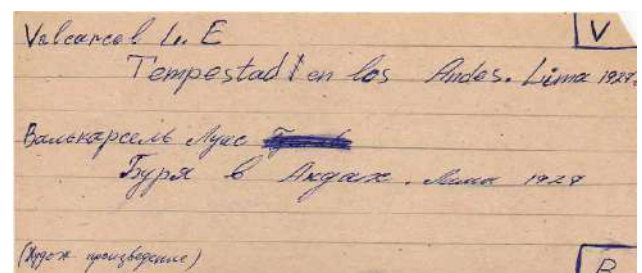 V
Valcarcel L. E
Tempestad en los Andes. Lima 1927
Валькарсель Луис
Буря в Андах. Лима 1927
(Худож произведение)
В